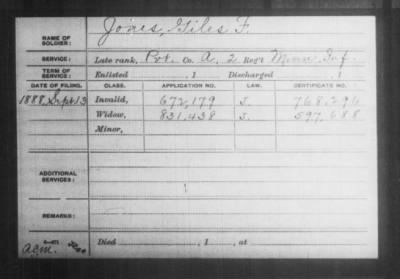 Jones, Giles F.
NAME OF SOLDIER:
SERVICE: Late rank, Pvt. Co. A, 2 Reg't Minn. Inf.
TERM OF SERVICE: Enlisted , 1 Discharged , 1
DATE OF FILING. CLASS. APPLICATION NO. LAW. CERTIFICATE NO.
1888 Sept 13 Invalid, 672,179 J. 768,296
Widow, 831,438 J. 597,688
Minor,
ADDITIONAL SERVICES:
REMARKS:
Died , 1 , at
acm.